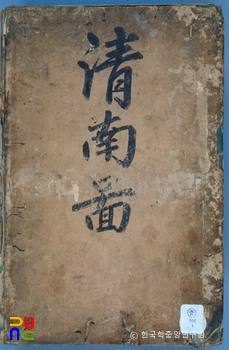 清南啚
© 한국학중앙연구원